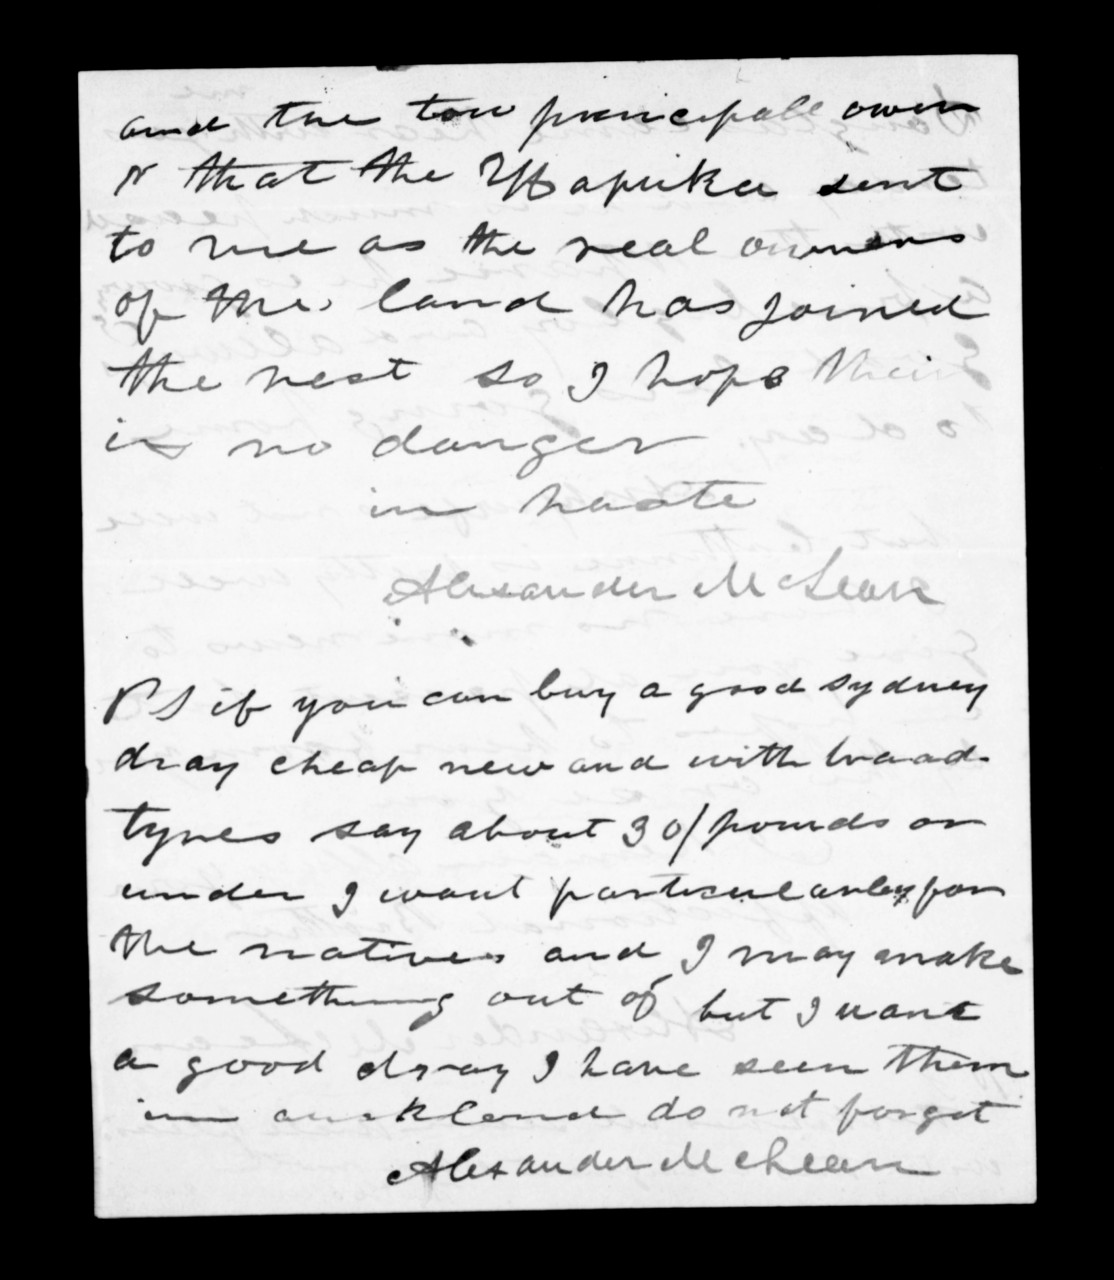 and the tow principall owen
r that the Hapuku sent
to me as the real owners
of the land has joined
the rest so I hope their
is no danger
in haste
Alexander McLean
PS if you can buy a good sydney
dray cheap new and with braad
tyres say about 30/pounds or
under I want particularley for
the natives and I may make
something out of but I want
a good dray I have seen them
in auckland do not forget
Alexander McLean